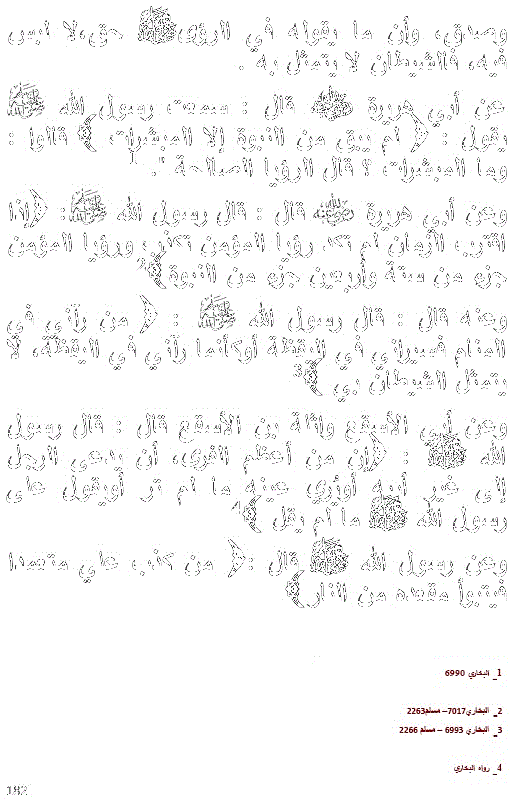 وصدق، وأن ما يقوله في الرؤى ﷺ حق، لا لبس
فيه، فالشيطان لا يتمثل به .
عن أبي هريرة ﷺ قال : سمعت رسول الله ﷺ
يقول : ﴿ لم يبق من النبوة إلا المبشرات ﴾ قالوا :
وما المبشرات ؟ قال الرؤيا الصالحة ".1
وعن أبي هريرة ﷺ قال : قال رسول الله ﷺ : ﴿إذا
اقترب الزمان لم تكد رؤيا المؤمن تكذب ورؤيا المؤمن
جزء من ستة وأربعين جزء من النبوة﴾2
وعنه قال : قال رسول الله ﷺ : ﴿ من رآني في
المنام فسيراني في اليقظة أوكأنما رآني في اليقظة، لا
يتمثل الشيطان بي ﴾3
وعن أبي الأسقع واثلة بن الأسقع قال : قال رسول
الله ﷺ : ﴿إن من أعظم الفرى، أن يدعى الرجل
إلى غير أبيه أويُري عينه ما لم تر أويقول على
رسول الله ﷺ ما لم يقل ﴾4
وعن رسول الله ﷺ قال :﴿ من كذب علي متعمدا
فليتبوأ مقعده من النار﴾
1_ البخاري 6990
2_ البخاري7017– مسلم2263
3_ البخاري 6993 – مسلم 2266
4_ رواه البخاري
182